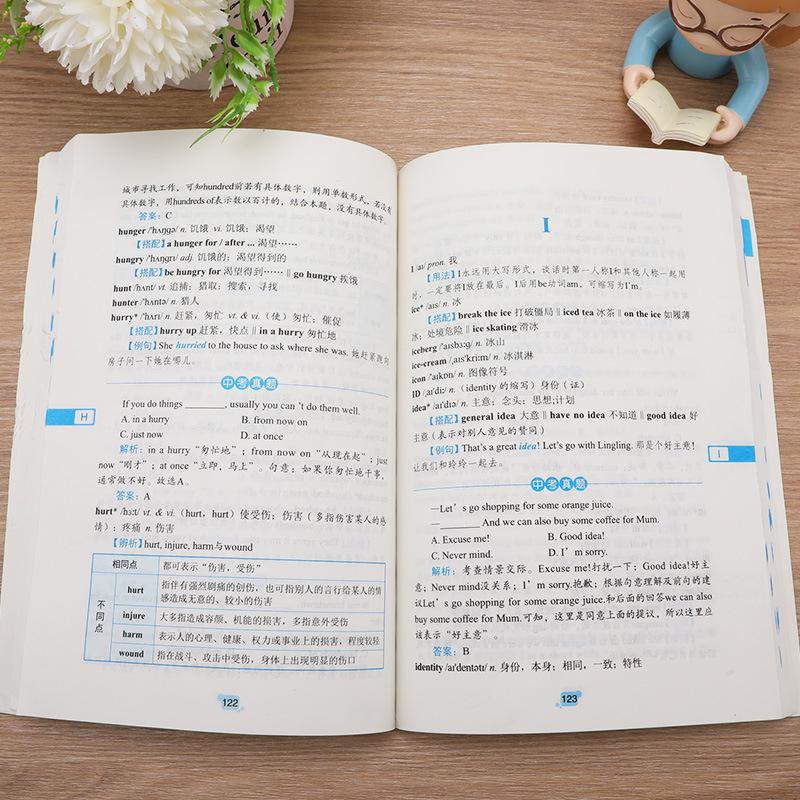 城市寻找工作，可知hundred前若有具体数字，则用单数形式，若没有
具体数字，用hundreds of表示数以百计的，结合本题，没有具体数字。
答案：C
hunger /'hʌŋgə/ n. 饥饿 vi. 饥饿；渴望
【搭配】a hunger for / after ... 渴望……
hungry /'hʌŋgri/ adj. 饥饿的；渴望得到的
【搭配】be hungry for 渴望得到…… ‖ go hungry 挨饿
hunt /hʌnt/ vt. 追捕；猎取；搜索，寻找
hunter /'hʌntə/ n. 猎人
hurry* /'hʌrɪ/ n. 赶紧，匆忙 vt. & vi.（使）匆忙；催促
【搭配】hurry up 赶紧，快点 ‖ in a hurry 匆忙地
【例句】She hurried to the house to ask where she was. 她赶紧跑向
房子问一下她在哪儿。
中考真题
If you do things ______, usually you can 't do them well.
A. in a hurry B. from now on
C. just now D. at once
解析：in a hurry "匆忙地"；from now on "从现在起"；just
now "刚才"；at once "立即，马上"。句意：如果你匆忙地干事，
通常做不好。故选A。
答案：A
hurt* /hɜːt/ vt. & vi.（hurt，hurt）使受伤；伤害（多指伤害某人的感
情）；疼痛 n. 伤害
【辨析】hurt, injure, harm与wound
相同点 都可表示"伤害，受伤"
不同点
hurt 指伴有强烈剧痛的创伤，也可指别人的言行给某人的情
感造成无意的、较小的伤害
injure 大多指造成容颜、机能的损害，多指意外受伤
harm 表示人的心理、健康、权力或事业上的损害，程度较轻
wound 指在战斗、攻击中受伤，身体上出现明显的伤口
H
122
I
I /aɪ/ pron. 我
【用法】I永远用大写形式，谈话时第一人称I和其他人称一起用
时，一定要将I放在最后。I后用be动词am，可缩写为I'm。
ice* /aɪs/ n. 冰
【搭配】break the ice 打破僵局 ‖ iced tea 冰茶 ‖ on the ice 如履薄
冰；处境危险 ‖ ice skating 滑冰
iceberg /'aɪsbɜːg/ n. 冰山
ice-cream /,aɪs'kriːm/ n. 冰淇淋
icon /'aɪkɒn/ n. 图像符号
ID /,aɪ'diː/ n.（identity 的缩写）身份（证）
idea* /aɪ'dɪə/ n. 主意；念头；思想；计划
【搭配】general idea 大意 ‖ have no idea 不知道 ‖ good idea 好
主意（表示对别人意见的赞同）
【例句】That's a great idea! Let's go with Lingling. 那是个好主意！
让我们和玲玲一起去。
中考真题
—Let’s go shopping for some orange juice.
—______ And we can also buy some coffee for Mum.
A. Excuse me! B. Good idea!
C. Never mind. D. I’m sorry.
解析：考查情景交际。Excuse me!打扰一下；Good idea!好主
意；Never mind没关系；I’m sorry.抱歉；根据句意理解及前句的建
议Let’s go shopping for some orange juice.和后面的回答we can also
buy some coffee for Mum.可知，这里是同意上面的提议，所以这里应
该表示"好主意"。
答案：B
identity /aɪ'dentətɪ/ n. 身份，本身；相同，一致；特性
I
123